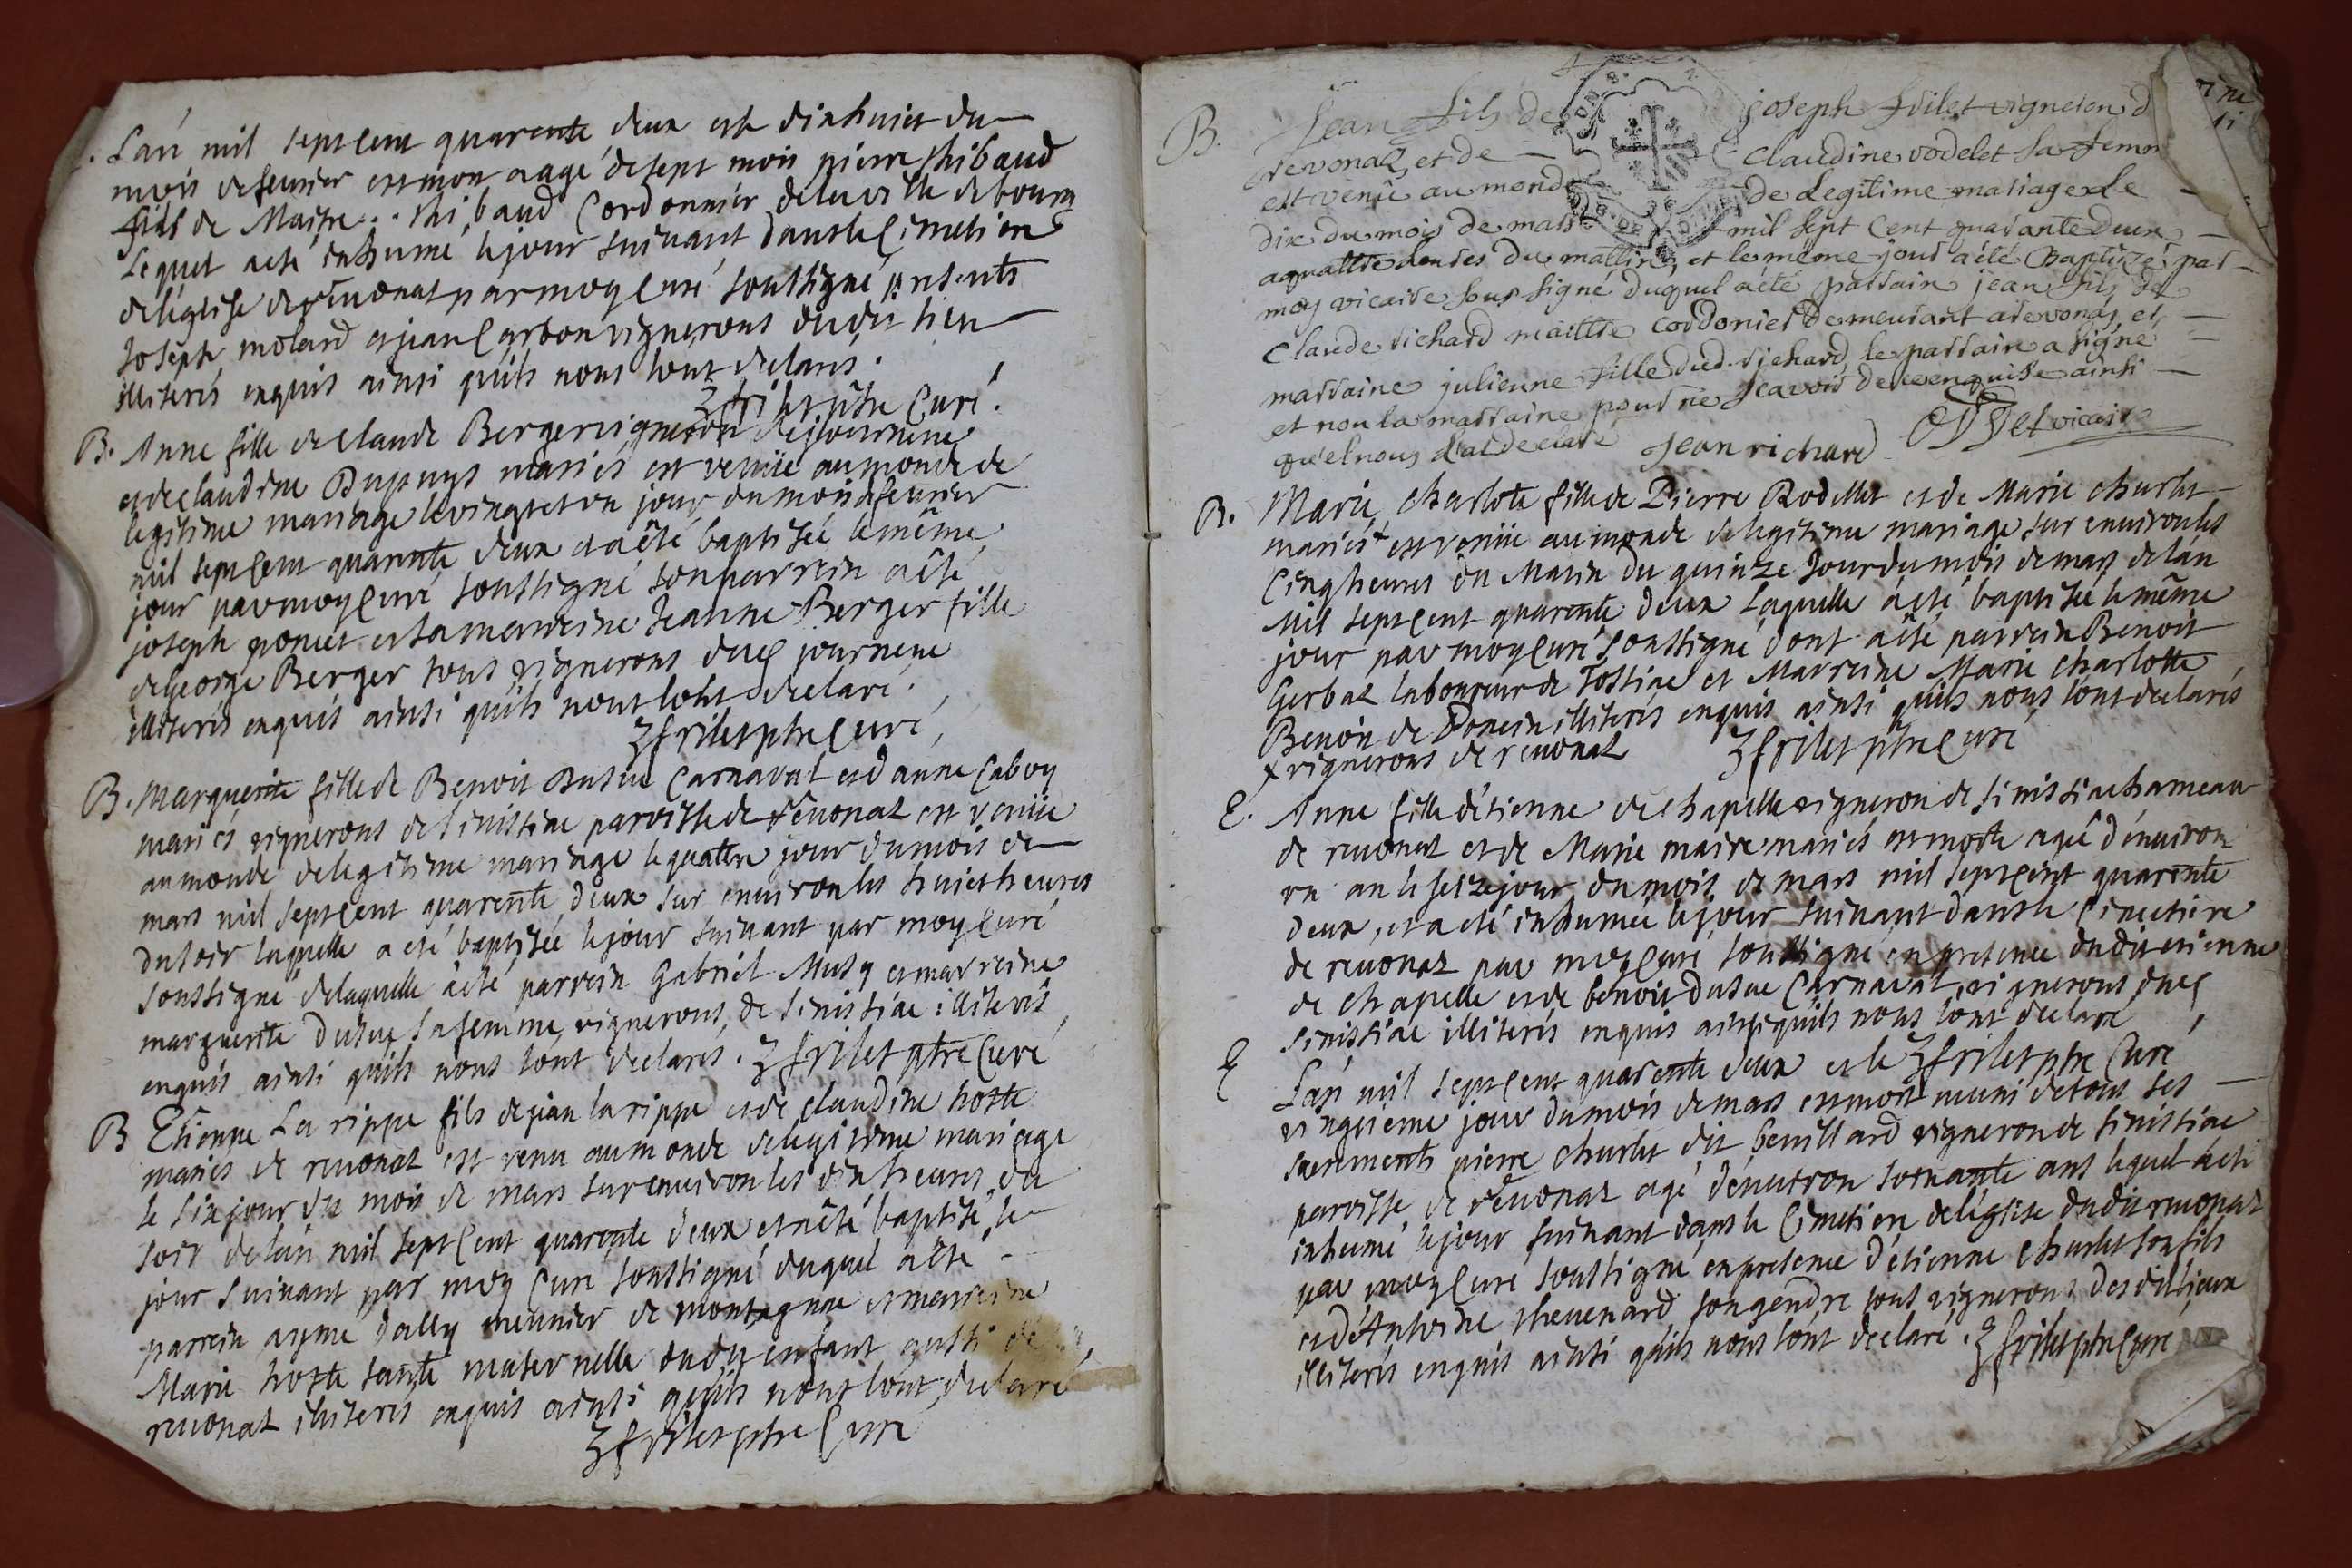 L'an mil sept cent quarente deux et le dixhuict du
mois de feurier est mort aagé de sept mois pierre thibaud
fils de Maitre .. thibaud Cordonnier de la ville de bourg
Lequel a esté inhumé le jour suivant dans le Cimetiere
de l'eglise de reuonas par moy Curé soussigné presents
Joseph molard et jean Carbon vignerons dudit lieu
illiterés enquis ainsi quils nous lont declarés.
frilet ptre Curé.
B. Anne fille de Claude Berger vigneron de journene
et de Claudine Dupuys mariés est venüe au monde de
legitime mariage le vingt et un jour du mois de feurier
mil sept Cent quarente deux et a été baptisée le même
jour par moy Curé soussigné son parrein a été
joseph poncet et sa marreine Jeanne Berger fille
de George Berger tous vignerons dud journene
illiterés enquis ainsi quils nous lont declaré.
frilet ptre Curé,
B. Marguerite fille de Benoit dusue Carnaval et d'anne Caboy
mariés vignerons de sinissiae paroisse de reuonas est venüe
au monde de legitime mariage le quatre jour du mois de
mars mil sept Cent quarente deux sur enuiron les huict heures
du soir laquelle a esté baptisée le jour suivant par moy Curé
soussigné de laquelle a été parrein Gabriel Musy et marreine
marguerite dusue sa femme vignerons de sinissiae illiterés
enquis ainsi quils nous lont declarés. frilet ptre Curé
B Etienne La rippe fils de jean la rippe et de Claudine hotte
mariés de reuonas est venu au monde de legitime mariage
le six jour du mois de mars sur enuiron les dix heures du
soir de l'an mil sept Cent quarente deux et a été baptisé le
jour suivant par moy Curé soussigné duquel a été
parrein aymé dolly meunier de montagnae et marreine
Marie hotte tante maternelle dudit enfant aussi de
reuonas illiterés enquis ainsi quils nous lont declaré
frilet ptre Curé
B. Jean fils de joseph frilet vigneron d
revonaz et de claudine vodelet sa femm
est venû au monde de Legitime mariage Le
dix du mois de mars mil sept Cent quarante deux
a quattre heures du mattin, et le même jour a été Baptizé par
moy vicaire sous signé duquel a été parrain jean fils de
Claude richard maittre cordonier demeurant a revonas et
marraine julienne fille dud. richard, le parrain a signé
et non la marraine pour ne scavoir de ce enquise ainsi
qu'el nous l'at declaré Jean richard vicaire
B. Marie charlote fille de Pierre Rodellet et de Marie charlet
mariés + est venüe au monde de legitime mariage sur enuiron les
Cinq heures du Matin du quinze Jour du mois de mars de lan
Mil sept Cent quarente deux laquelle a été baptisée le même
jour par moy Curé soussigné dont a été parrein Benoit
Gerbaz laboureur de Tossiae et Marreine Marie charlotte
Benoin de Doncin illiterés enquis ainsi quils nous lont declarés
+ vignerons de reuonaz frilet ptre Curé
E. Anne fille d'étienne de chapelle vigneron de sinissiae hameau
de reuonas et de Marie maire mariés est morte agée d'enuiron
vn an le seize jour du mois de mars mil sept Cent quarente
deux, et a été inhumée le jour suivant dans le Cimetiere
de reuonaz par moy Curé soussigné en presence dudit etienne
de chapelle et de benoit dusue Carnaval vignerons dud
sinissiae illiterés enquis ainsi quils nous lont declaré
E L'an mil sept Cent quarente deux et le frilet ptre Curé
vingtieme jour du mois de mars est mort muni de tous ses
sacrements pierre charlet dit bevillard vigneron de sinissiae
paroisse de reuonaz agé d'enuiron soixante ans lequel a eté
inhumé le jour suivant dans le Cimetiere de l'eglise dudit reuonaz
par moy Curé soussigné en presence d'étienne charlet son fils
et d'Antoine thevenard son gendre tous vignerons desdits lieux
illiterés enquis ainsi quils nous lont declaré. frilet ptre Curé